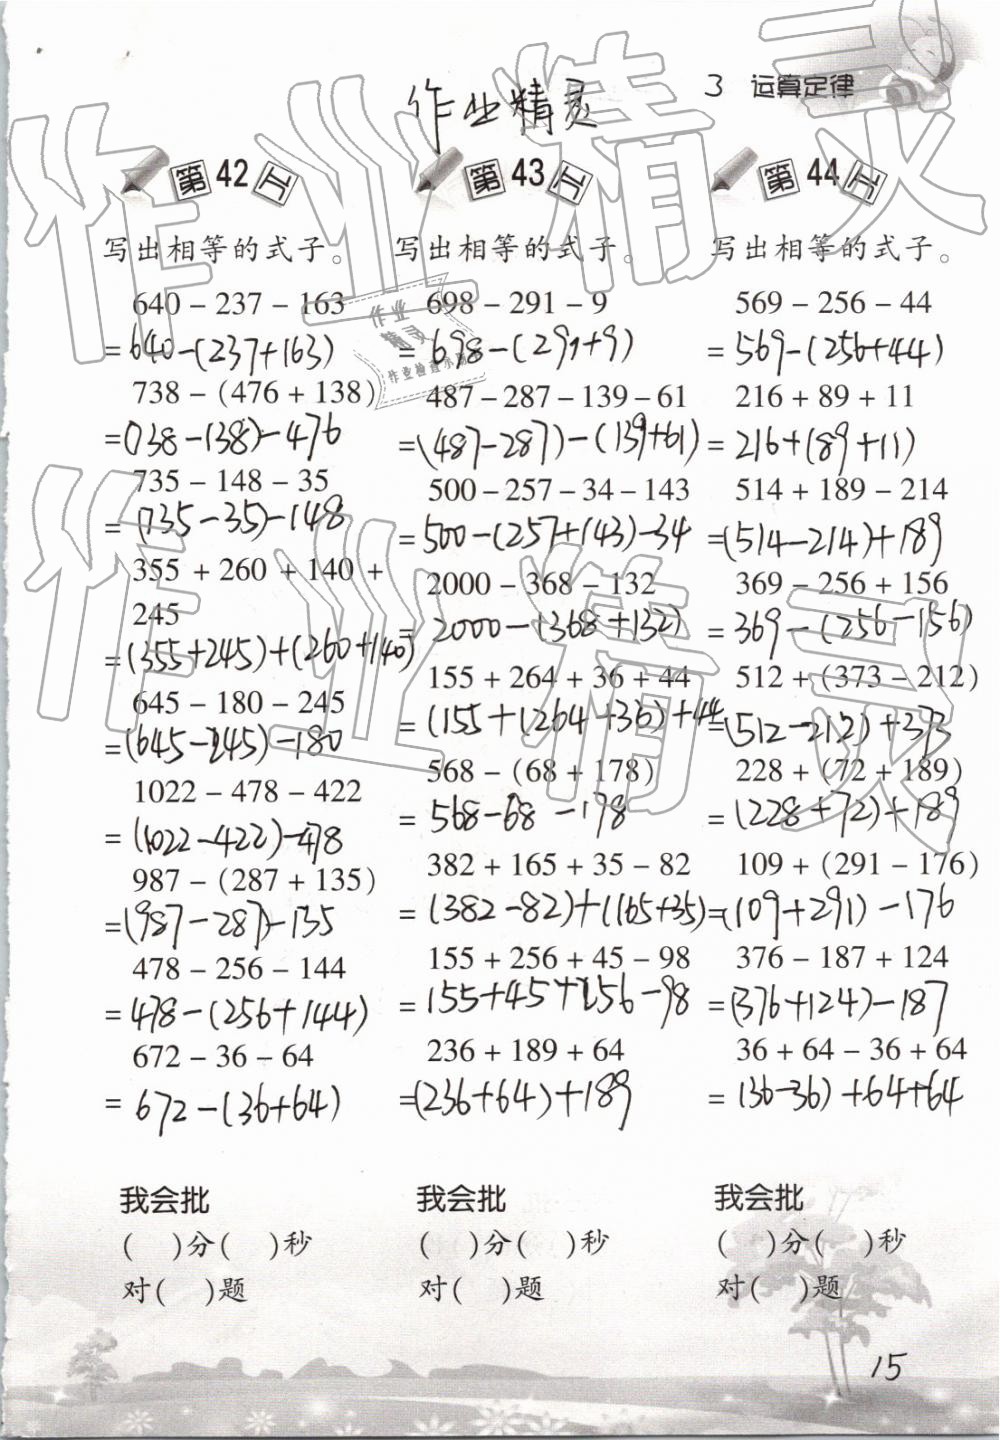 作业精灵
3 运算定律
第42页
写出相等的式子。
640－237－163
=640-(237+163)
738－(476＋138)
=(738-138)-476
735－148－35
=(735-35)-148
355＋260＋140＋
245
=(355+245)+(260+140)
645－180－245
=(645-245)-180
1022－478－422
=(1022-422)-478
987－(287＋135)
=(987-287)-135
478－256－144
=478-(256+144)
672－36－64
=672-(36+64)
我会批
(　)分(　)秒
对(　)题
第43页
写出相等的式子。
698－291－9
=698-(291+9)
487－287－139－61
=(487-287)-(139+61)
500－257－34－143
=500-(257+143)-34
2000－368－132
=2000-(368+132)
155＋264＋36＋44
=(155+(264+36)+44
568－(68＋178)
=568-68-178
382＋165＋35－82
=(382-82)+(165+35)
155＋256＋45－98
=155+45+256-98
236＋189＋64
=(236+64)+189
我会批
(　)分(　)秒
对(　)题
第44页
写出相等的式子。
569－256－44
=569-(256+44)
216＋89＋11
=216+(89+11)
514＋189－214
=(514-214)+189
369－256＋156
=369-(256-156)
512＋(373－212)
=(512-212)+373
228＋(72＋189)
=(228+72)+189
109＋(291－176)
=(109+291)-176
376－187＋124
=(376+124)-187
36＋64－36＋64
=(36-36)+64+64
我会批
(　)分(　)秒
对(　)题
15
作业精灵
作业精灵
作业
精灵